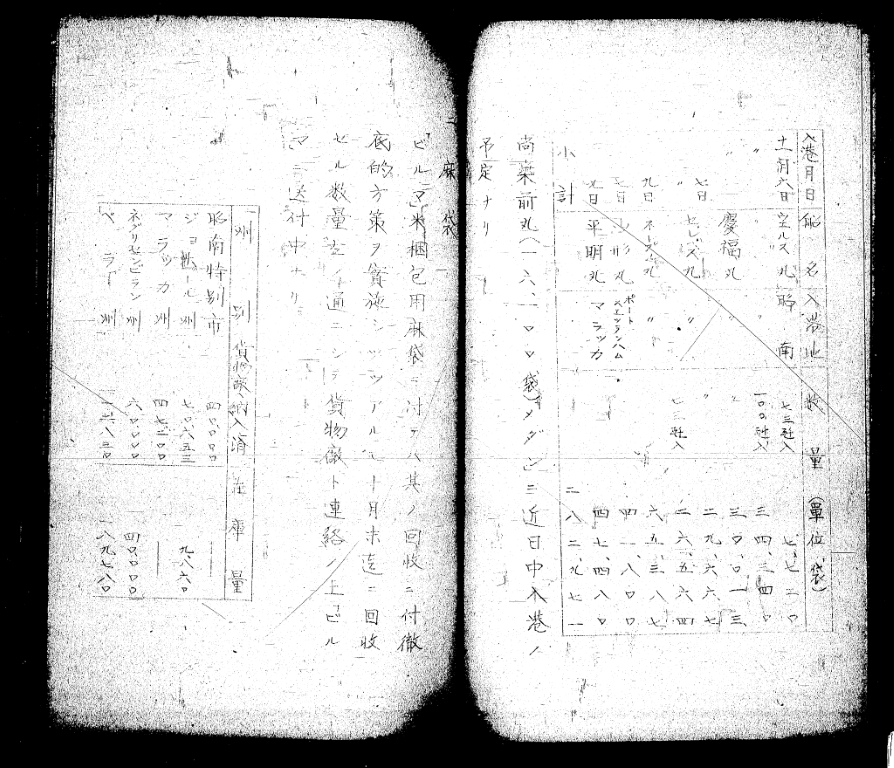 入港月日 船名 入港地 数量(単位 袋)
十一月六日 ウエルス丸 昭南 七三瓩入 七、七二〇
〃 〃 一〇〇瓩入 三四、三四〇
慶福丸 〃 〃 三〇、〇一三
七日 〃 二九、六六七
〃 セレベス丸 〃 七三瓩入 二六、五六四
九日 〃 六五、三八七
ポートスエツテンハム 四一、八〇〇
平明丸 マラッカ 四七、四八〇
小計 二八二、九七一
尚葉前丸(一六、一〇〇袋)メダンニ近日中入港ノ
予定ナリ
二 麻袋
ビルマ米梱包用麻袋ニ付テハ其ノ回収ニ付徹
底的方策ヲ実施シツツアルモ十月末迄ニ回収
セル数量左ノ通ニシテ貨物廠ト連絡ノ上ビル
マニ送付中ナリ
州別 貨物廠納入済 在庫量
昭南特別市 四〇、〇〇〇
ジョホール州 七〇、六五三 九、八六〇
マラッカ州 四七、二〇〇
ネグリセンビラン州 六〇、〇〇〇 四〇、〇〇〇
ペラー州 一六、八三〇 一八九、七八〇